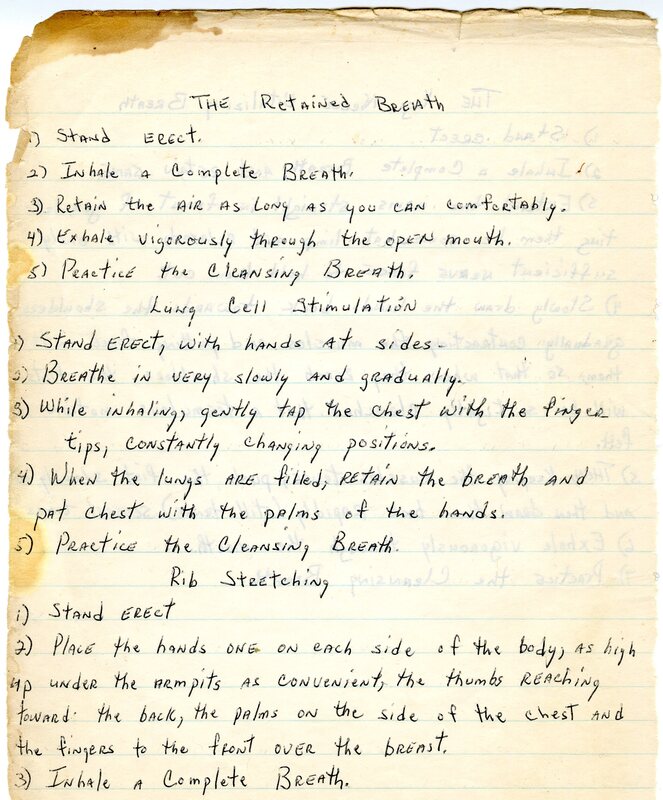 THE Retained Breath
1) Stand erect.
2) Inhale a Complete Breath.
3) Retain the air as long as you can comfortably.
4) Exhale vigorously through the open mouth.
5) Practice the Cleansing Breath.
Lung Cell Stimulation
1) Stand erect, with hands at sides-
2) Breathe in very slowly and gradually.
3) While inhaling, gently tap the chest with the finger
tips, constantly changing positions.
4) When the lungs are filled, retain the breath and
pat chest with the palms of the hands.
5) Practice the Cleansing Breath.
Rib Stretching
1) Stand erect
2) Place the hands one on each side of the body, as high
up under the armpits as convenient, the thumbs reaching
toward the back, the palms on the side of the chest and
the fingers to the front over the breast.
3) Inhale a Complete Breath.